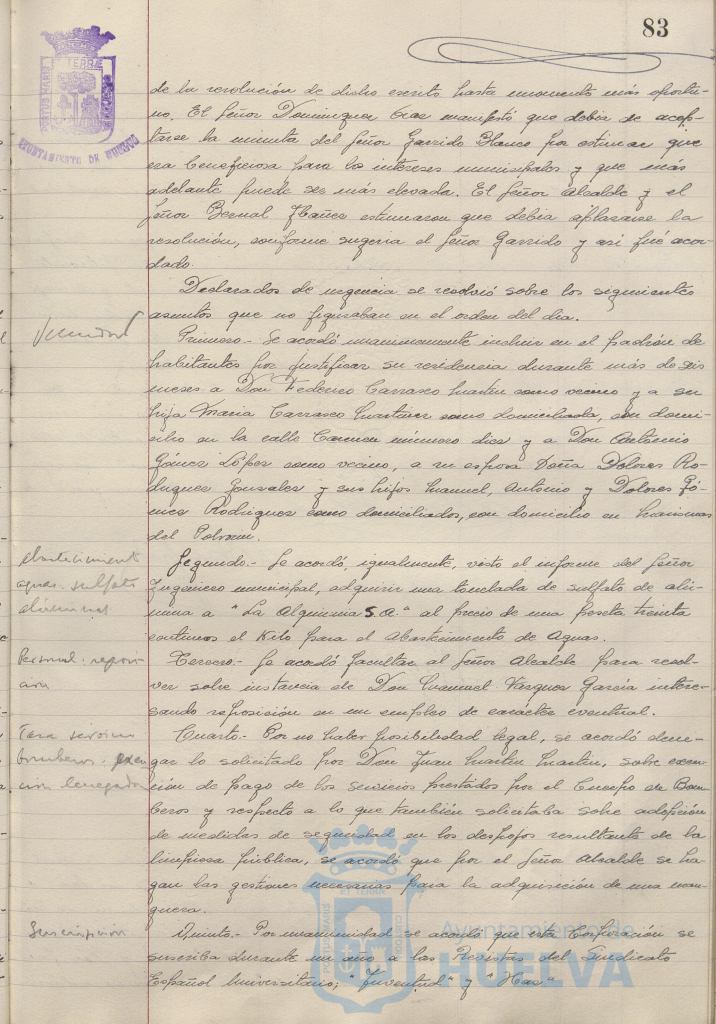 83
PORTUS MARIS ET TERRÆ CUSTODIA
AYUNTAMIENTO DE HUELVA
de la resolución de dicho escrito hasta momento más oportu-
no. El Señor Dominguez Gras manifestó que debia de acep-
tarse la minuta del Señor Garrido Blanco por estimar que
era beneficiosa para los intereses municipales y que más
adelante puede ser más elevada. El Señor Alcalde y el
Señor Bernal Ibañez estimaron que debia aplazarse la
resolución, conforme sugeria el Señor Garrido y asi fué acor-
dado.
Declarados de urgencia se resolvió sobre los siguientes
asuntos que no figuraban en el orden del dia.
Vecindad
Primero.- Se acordó unanimemente incluir en el padrón de
habitantes por justificar su residencia durante más de seis
meses a Don Federico Carrasco Martin como vecino y a su
hija Maria Carrasco Martinez como domiciliada, con domi-
cilio en la calle Carmen número diez y a Don Antonio
Gómez López como vecino, a su esposa Doña Dolores Ro-
driguez Gonzalez y sus hijos Manuel, Antonio y Dolores Gó-
mez Rodriguez como domiciliados, con domicilio en Marismas
del Polvorin.
Abastecimiento
aguas. sulfato
alúmina
Segundo.- Se acordó, igualmente, visto el informe del Señor
Ingeniero municipal, adquirir una tonelada de sulfato de alú-
mina a "La Alquimia S.A." al precio de una peseta treinta
centimos el Kilo para el Abastecimiento de Aguas.
Personal. reposi-
ción
Tercero.- Se acordó facultar al Señor Alcalde para resol-
ver sobre instancia de Don Manuel Vazquez Garcia intere-
sando reposición en su empleo de carácter eventual.
Tasa servicio
bomberos. exen-
ción denegada
Cuarto.- Por no haber posibilidad legal, se acordó dene-
gar lo solicitado por Don Juan Martin Martin, sobre exen-
ción de pago de los servicios prestados por el Cuerpo de Bom-
beros y respecto a lo que también solicitaba sobre adopción
de medidas de seguridad en los despojos resultante de la
limpieza pública, se acordó que por el Señor Alcalde se ha-
gan las gestiones necesarias para la adquisición de una man-
guera.
Suscripción
Quinto.- Por unanimidad se acordó que esta Corporación se
suscriba durante un año a las Revistas del Sindicato
Español Universitario; "Juventud" y "Haz"
Ayuntamiento de
HUELVA